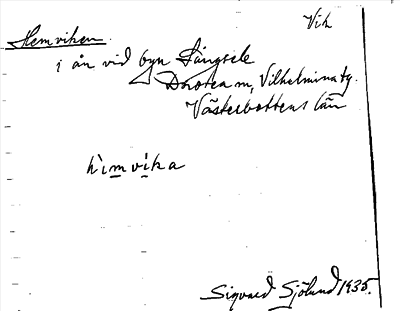 Vik
Hemviken.
i ån vid byn Långsele
Dorotea sn, Vilhelmina tg.
Västerbottens län
hi̇mvika
Sigvard Sjölund 1935.